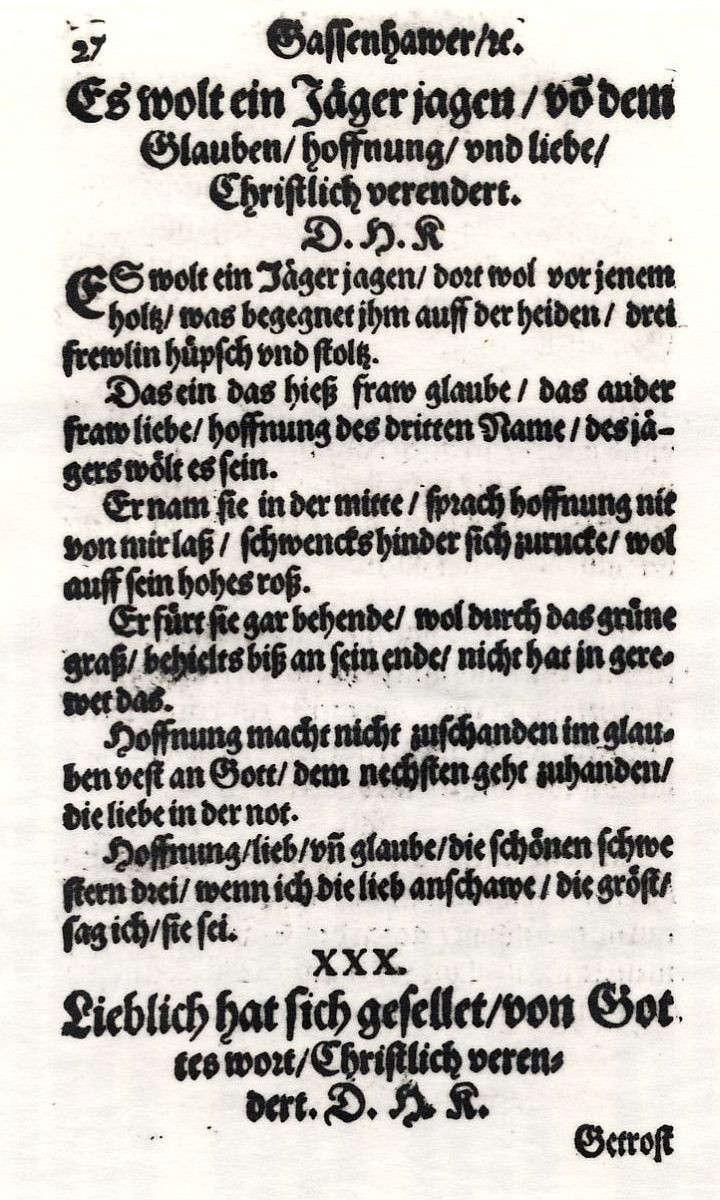 27 Gassenhawer/ꝛc.
Es wolt ein Jäger jagen / võ dem
Glauben/ hoffnung/ vnd liebe/
Christlich verendert.
D. H. K
ES wolt ein Jäger jagen/ dort wol vor jenem
holtz/ was begegnet jhm auff der heiden / drei
frewlin hüpsch vnd stoltz.
Das ein das hieß fraw glaube / das ander
fraw liebe/ hoffnung des dritten Name / des jä-
gers wölt es sein.
Er nam sie in der mitte / sprach hoffnung nit
von mir laß / schwencks hinder sich zurucke/ wol
auff sein hohes roß.
Er fürt sie gar behende/ wol durch das grüne
graß/ behielts biß an sein ende/ nicht hat jn gere-
wet das.
Hoffnung macht nicht zuschanden im glau-
ben vest an Gott/ dem nechsten geht zuhanden/
die liebe in der not.
Hoffnung/lieb/vñ glaube/die schönen schwe
stern drei/ wenn ich die lieb anschawe / die gröst/
sag ich/sie sei.
XXX.
Lieblich hat sich gesellet/von Got
tes wort/Christlich veren-
dert. D. H. K.
Getrost